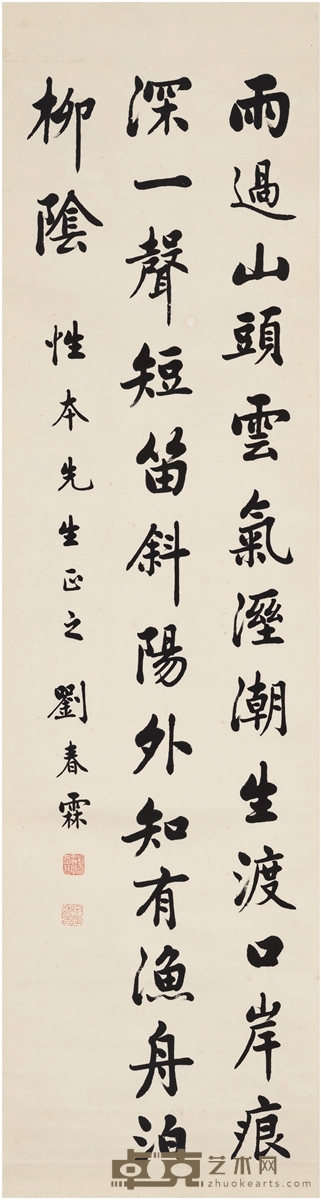 雨過山頭雲氣溼潮生渡口岸痕
深一聲短笛斜陽外知有漁舟泊
柳陰
性本先生正之 劉春霖
卓克艺术网
zhuokearts.com